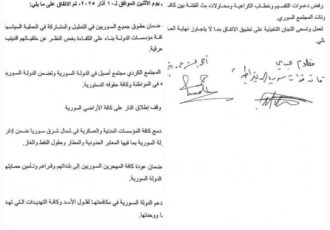 يوم الاثنين الموافق لـ ١٠ آذار ٢٠٢٥، تم الاتفاق على ما يلي:
ضمان حقوق جميع السوريين في التمثيل والمشاركة في العملية السياسية
كافة مؤسسات الدولة بناء على الكفاءة بغض النظر عن خلفياتهم الدينية
المجتمع الكردي مجتمع أصيل في الدولة السورية وتضمن الدولة السورية
في المواطنة وكافة حقوقه الدستورية
وقف إطلاق النار على كافة الأراضي السورية
دمج كافة المؤسسات المدنية والعسكرية في شمال شرق سوريا ضمن إدارة
الدولة السورية بما فيها المعابر الحدودية والمطار وحقول النفط والغاز
ضمان عودة كافة المهجرين السوريين إلى بلداتهم وقراهم وتأمين حمايتهم
الدولة السورية
دعم الدولة السورية في مكافحتها لفلول الأسد وكافة التهديدات التي تهدد
وحدتها
رفض دعوات التقسيم وخطاب الكراهية ومحاولات بث الفتنة بين كافة
ونات المجتمع السوري
تعمل وتسعى اللجان التنفيذية على تطبيق الاتفاق بما لا يتجاوز نهاية العام
مظلوم عبدي
أحمد الشرع